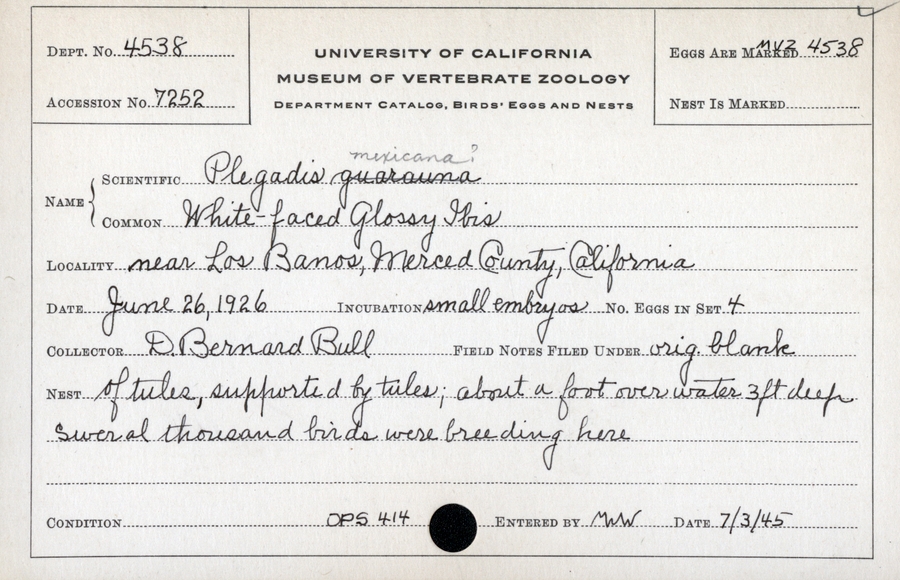 DEPT. No. 4538
ACCESSION No. 7252
UNIVERSITY OF CALIFORNIA
MUSEUM OF VERTEBRATE ZOOLOGY
DEPARTMENT CATALOG, BIRDS' EGGS AND NESTS
EGGS ARE MARKED MVZ 4538
NEST IS MARKED
mexicana?
NAME { SCIENTIFIC Plegadis guarauna
COMMON White-faced Glossy Ibis
LOCALITY near Los Banos, Merced County, California
DATE June 26, 1926 INCUBATION small embryos No. EGGS IN SET 4
COLLECTOR D. Bernard Bull FIELD NOTES FILED UNDER orig. blank
NEST of tules, supported by tules; about a foot over water 3ft deep
several thousand birds were breeding here
CONDITION OPS 414 ENTERED BY MWW DATE 7/3/45